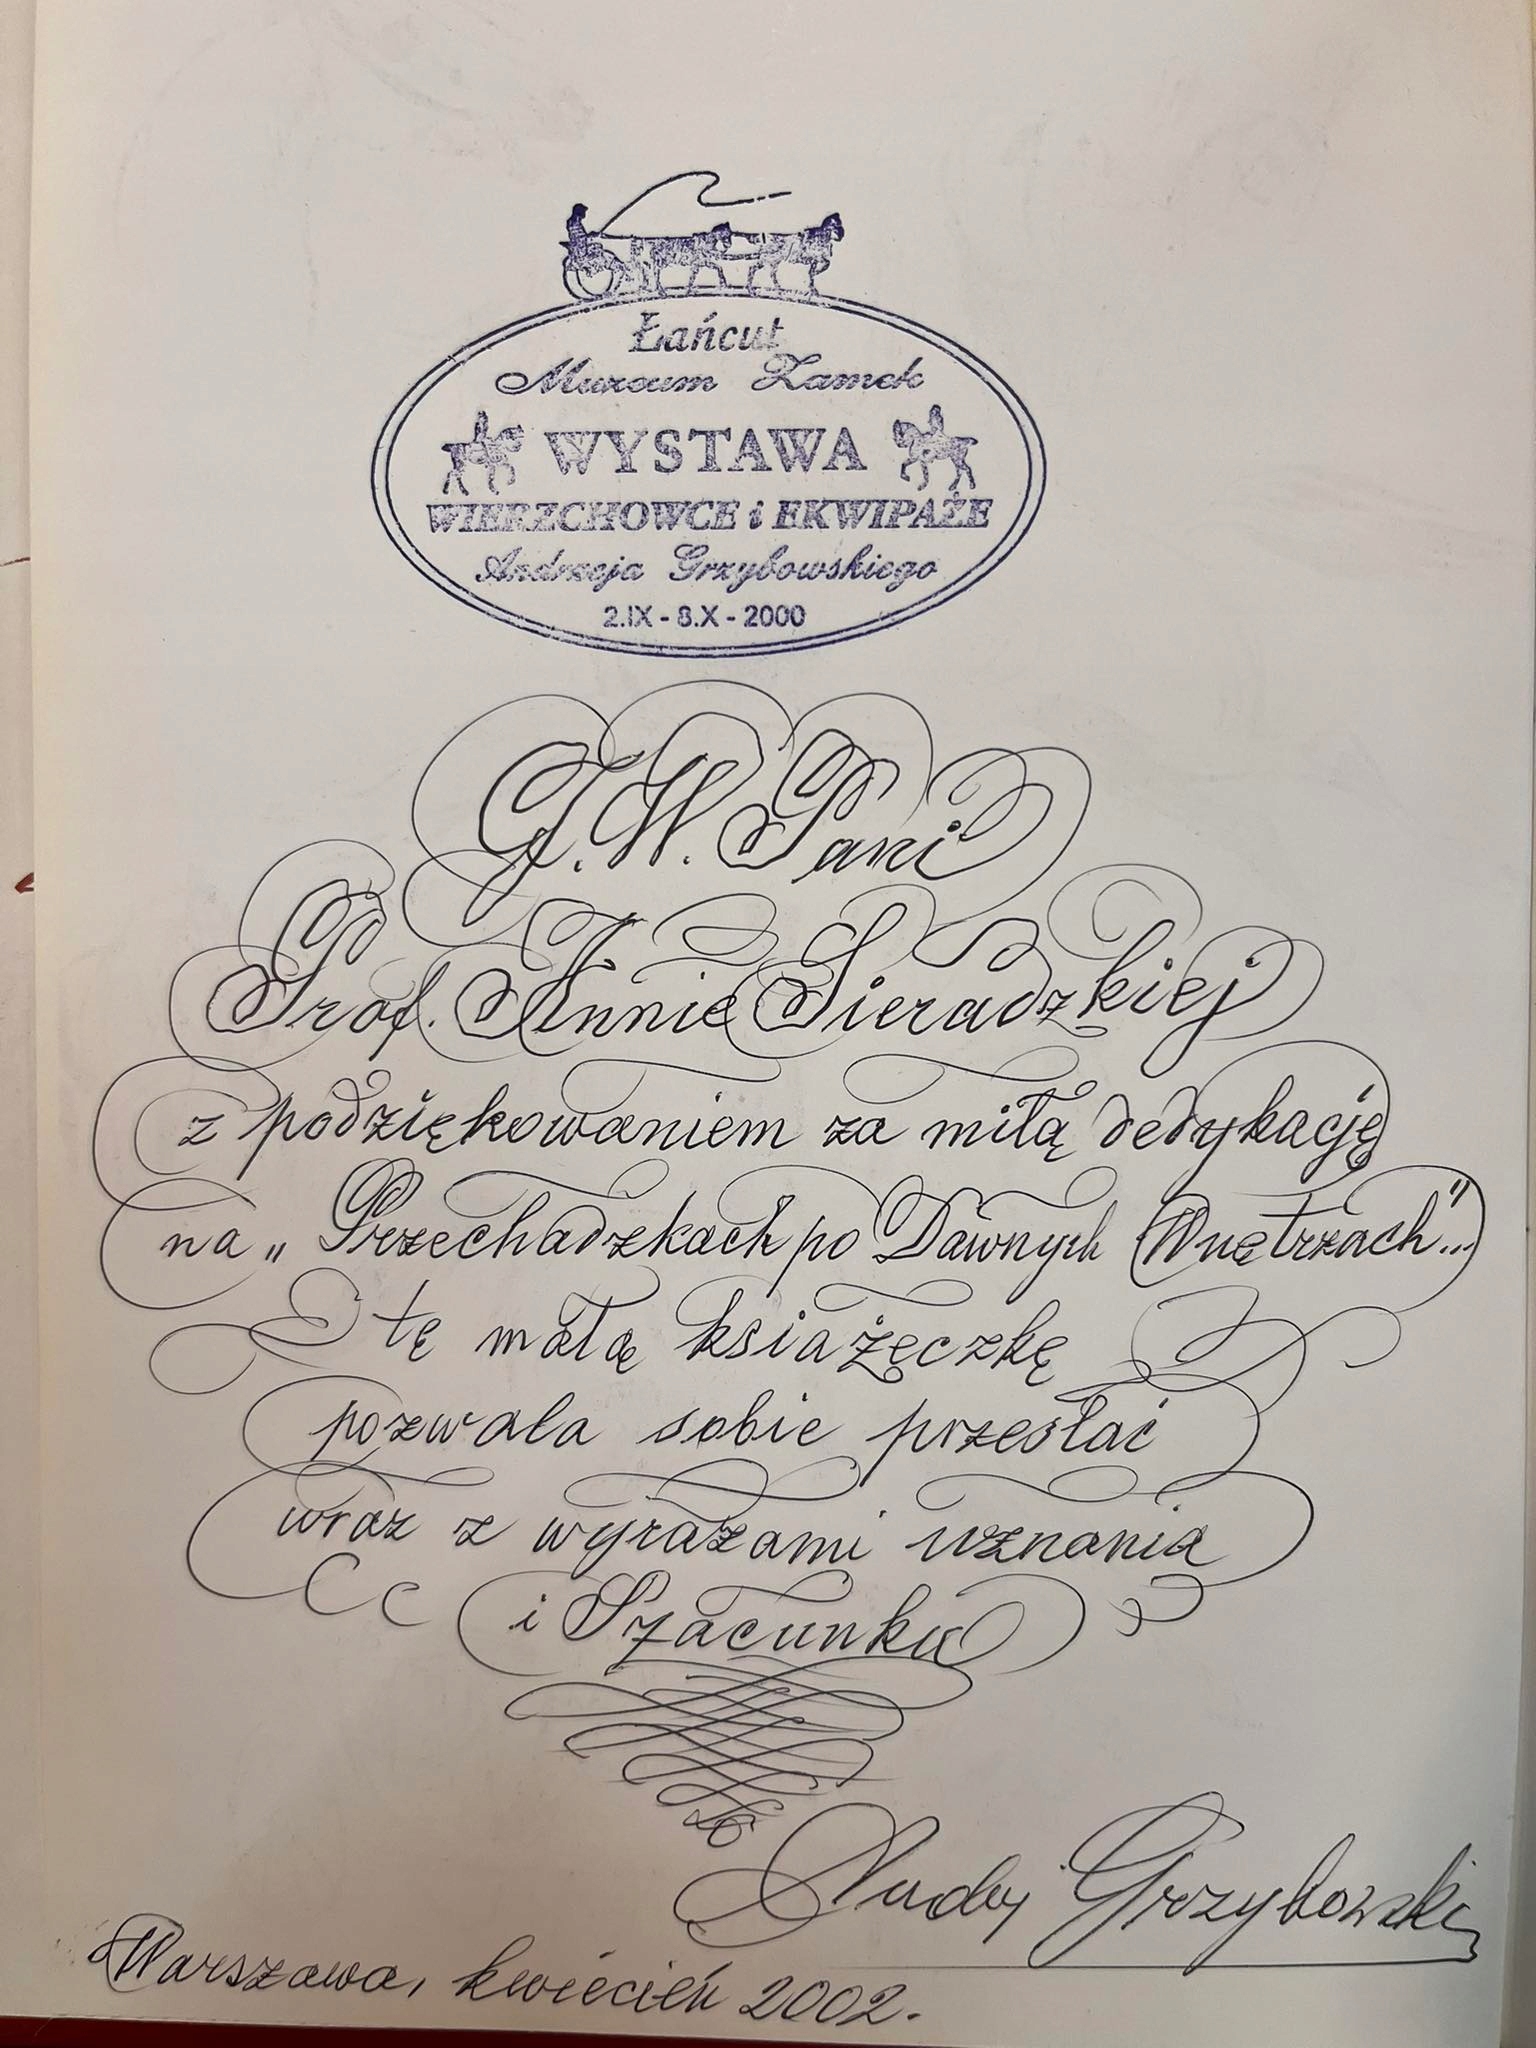 Łańcut
Muzeum Zamek
WYSTAWA
WIERZCHOWCE i EKWIPAŻE
Andrzeja Grzybowskiego
2.IX - 8.X - 2000
J.W. Pani
Prof. Annie Sieradzkiej
z podziękowaniem za miłą dedykację
na „Przechadzkach po Dawnych Wnętrzach"...
tę małą książęczkę
pozwala sobie przesłać
wraz z wyrazami uznania
i Szacunku
Grzybowski
Warszawa, kwiecień 2002.